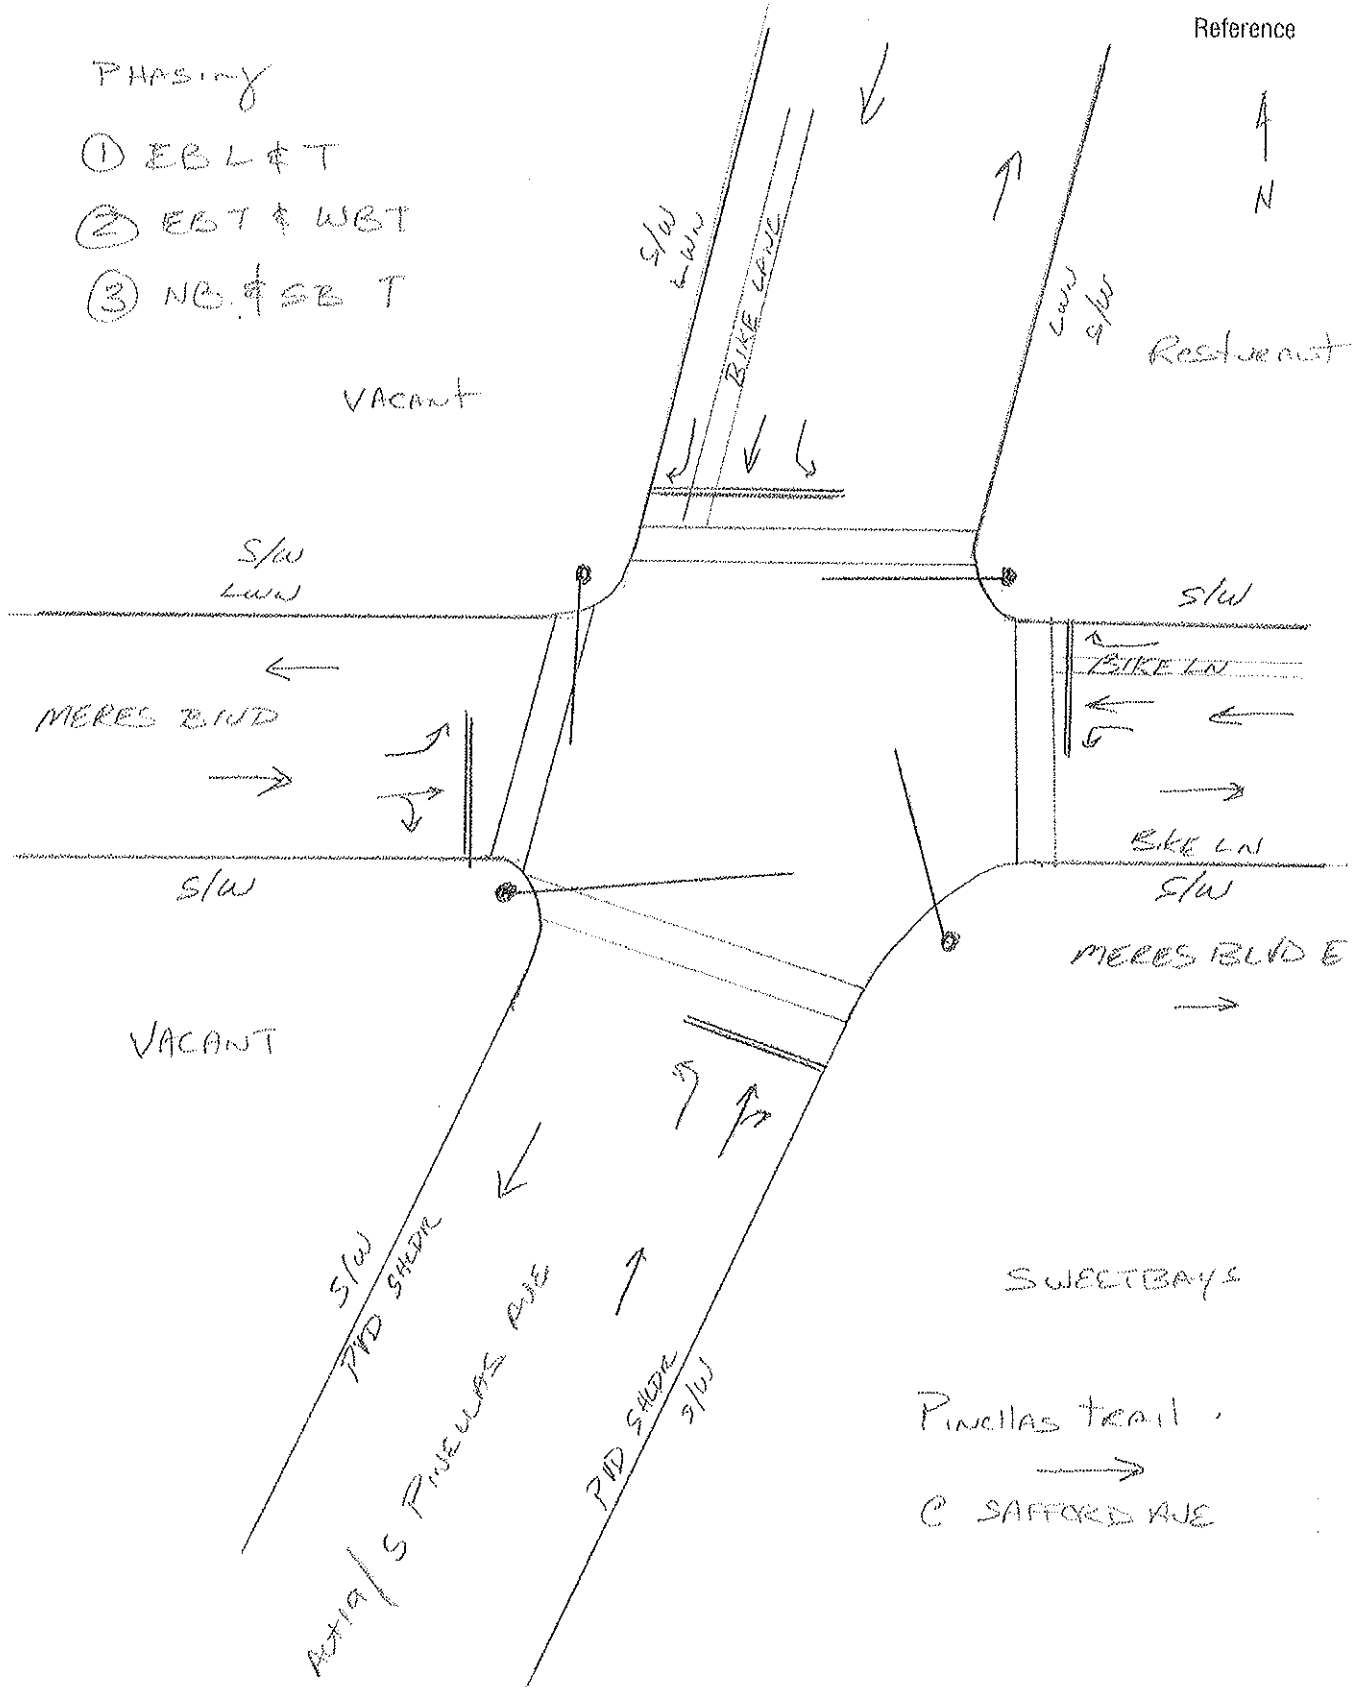 Reference
PHASING
① EB L & T
② EBT & WBT
③ NB. & SB T
N
S/W
LWN
BIKE LANE
LWN
S/W
Restuerant
VACANT
S/W
LWN
S/W
BIKE LN
MERES BLVD
BIKE LN
S/W
S/W
MERES BLVD E
VACANT
S/W
PVD SHLDR
S PINELLAS AVE
PVD SHLDR
S/W
SWEETBAYS
Pinellas trail
@ SAFFORD AVE